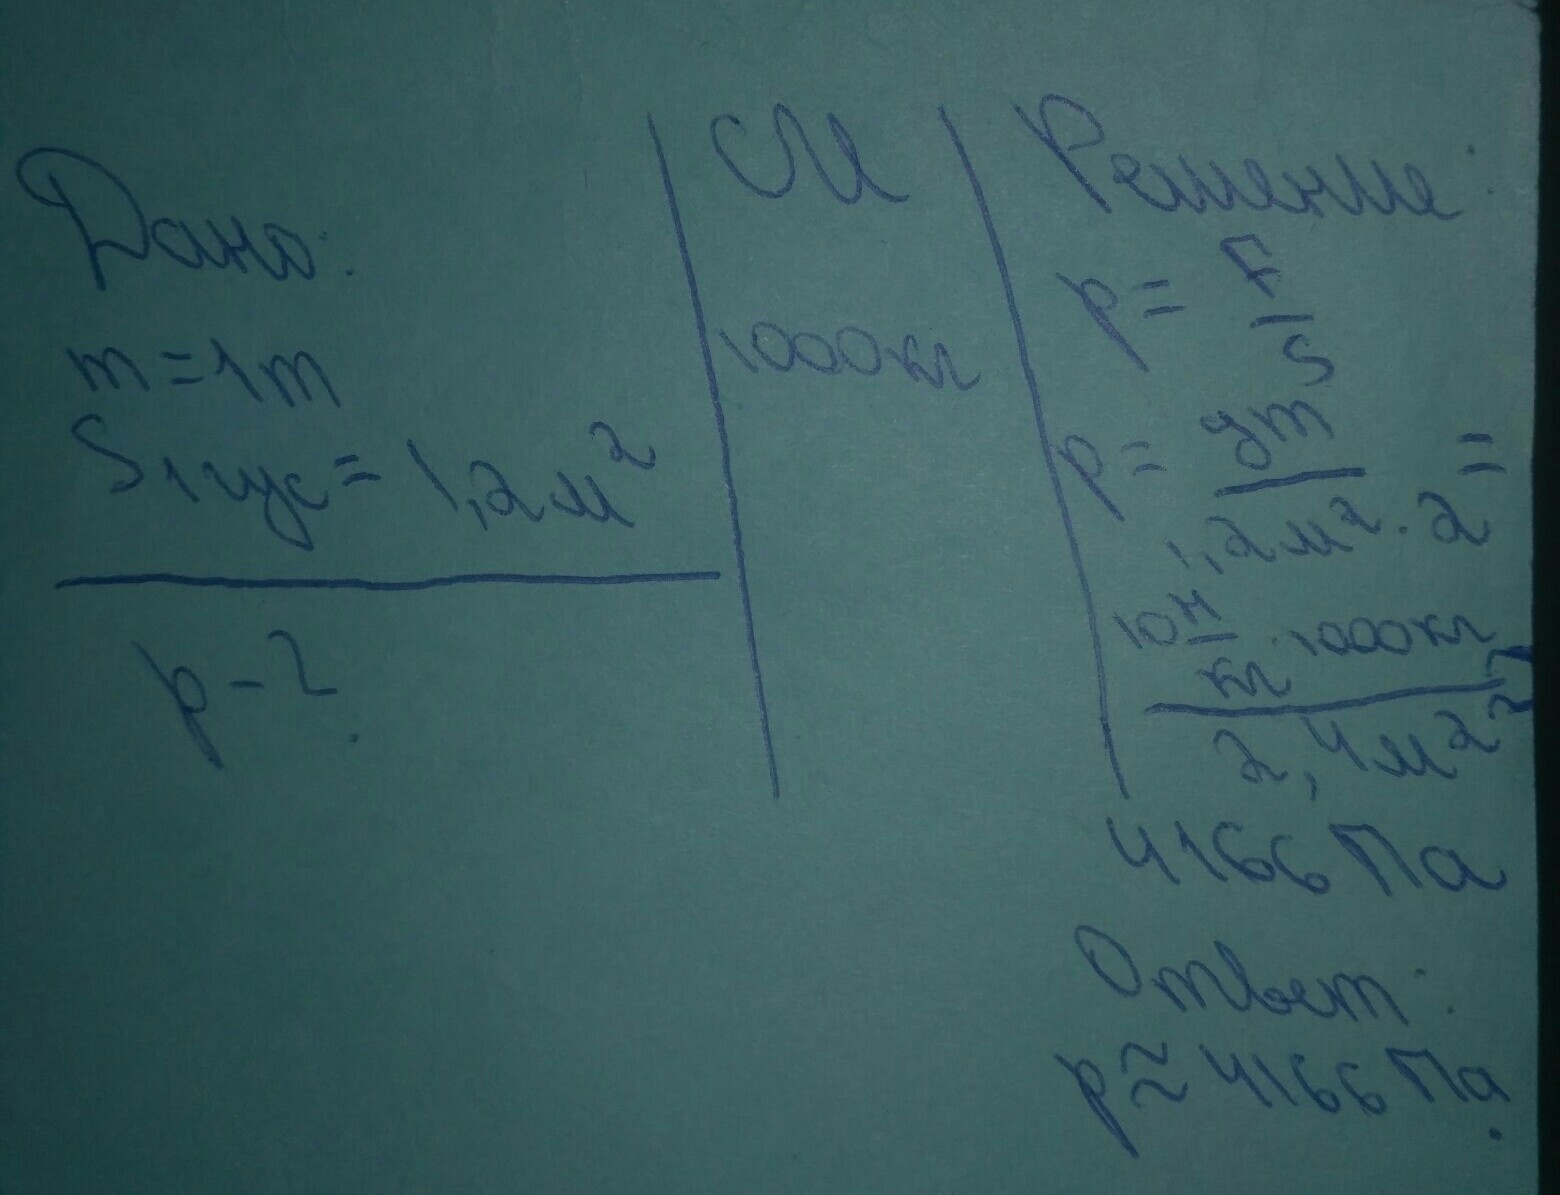 Дано:
m = 1т
S1гус = 1,2 м²
p - ?
СИ
1000 кг
Решение:
p = F/S
p = gm/1,2 м² · 2 =
10 Н/кг · 1000 кг/2,4 м²
4166 Па
Ответ:
p ≈ 4166 Па.